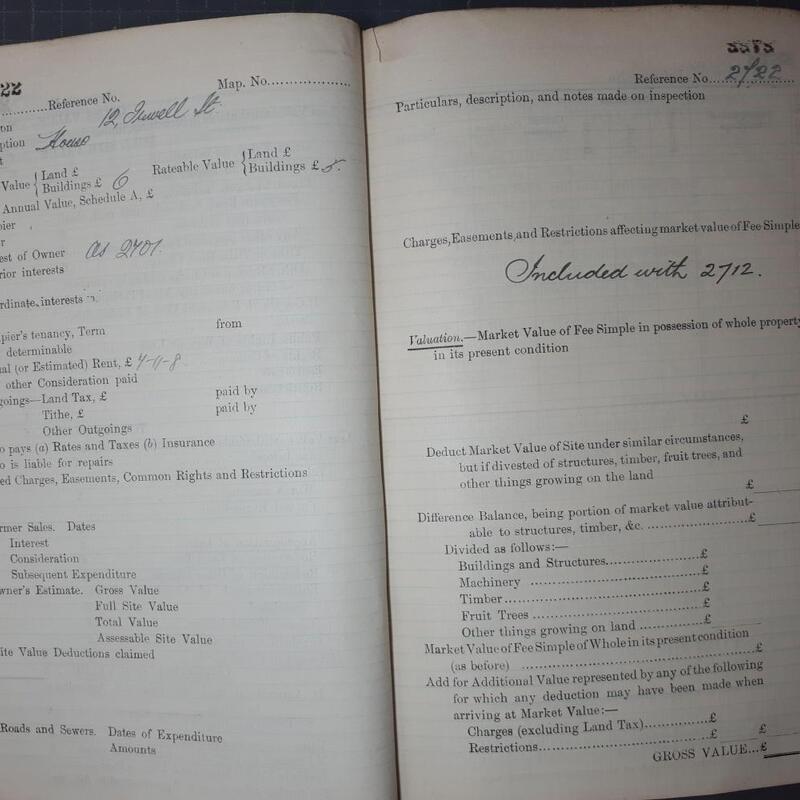 22
Map. No...................
............Reference No.
on 12, Juwell St.
ption House
t
Value { Land £
Buildings £ 6
Rateable Value { Land £
Buildings £ 5.
Annual Value, Schedule A, £
pier
r
est of Owner as 2701.
rior interests
rdinate interests
pier's tenancy, Term from
determinable
ual (or Estimated) Rent, £ 4-11-8.
other Consideration paid
goings—Land Tax, £ paid by
Tithe, £ paid by
Other Outgoings
o pays (a) Rates and Taxes (b) Insurance
o is liable for repairs
ed Charges, Easements, Common Rights and Restrictions
rmer Sales. Dates
Interest
Consideration
Subsequent Expenditure
wner's Estimate. Gross Value
Full Site Value
Total Value
Assessable Site Value
ite Value Deductions claimed
Roads and Sewers. Dates of Expenditure
Amounts
Reference No. 2722
Particulars, description, and notes made on inspection
Charges, Easements, and Restrictions affecting market value of Fee Simple
Included with 2712.
Valuation.—Market Value of Fee Simple in possession of whole property
in its present condition
£
Deduct Market Value of Site under similar circumstances,
but if divested of structures, timber, fruit trees, and
other things growing on the land
£
Difference Balance, being portion of market value attribut-
able to structures, timber, &c. ..................£
Divided as follows:—
Buildings and Structures..................£
Machinery ..................£
Timber..................£
Fruit Trees ..................£
Other things growing on land ..................£
Market Value of Fee Simple of Whole in its present condition
(as before) ..................£
Add for Additional Value represented by any of the following
for which any deduction may have been made when
arriving at Market Value:—
Charges (excluding Land Tax)..................£
Restrictions..................£ £
GROSS VALUE...£